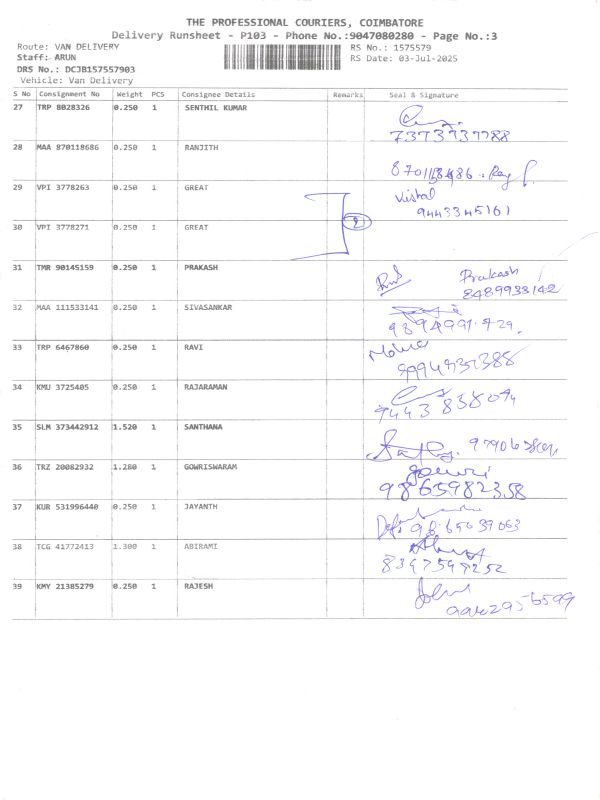 THE PROFESSIONAL COURIERS, COIMBATORE
Delivery Runsheet - P103 - Phone No.:9047080280 - Page No.:3
Route: VAN DELIVERY RS No.: 1575579
Staff: ARUN RS Date: 03-Jul-2025
DRS No.: DCJB157557903
Vehicle: Van Delivery
S No Consignment No Weight PCS Consignee Details Remarks Seal & Signature
27 TRP 8028326 0.250 1 SENTHIL KUMAR
28 MAA 870118686 0.250 1 RANJITH
29 VPI 3778263 0.250 1 GREAT
9443345161
2
30 VPI 3778271 0.250 1 GREAT
31 TMR 90145159 0.250 1 PRAKASH
Prakash
8489933142
32 MAA 111533141 0.250 1 SIVASANKAR
33 TRP 6467860 0.250 1 RAVI
34 KMU 3725405 0.250 1 RAJARAMAN
35 SLM 373442912 1.520 1 SANTHANA
36 TRZ 20082932 1.280 1 GOWRISWARAM
Gowri
9865982358
37 KUR 531996440 0.250 1 JAYANTH
38 TCG 41772413 1.300 1 ABIRAMI
39 KMY 21385279 0.250 1 RAJESH